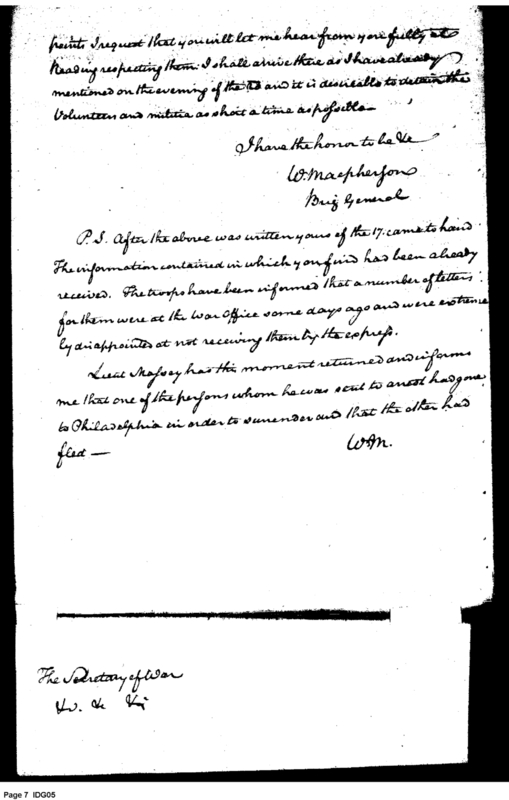 points I request that you will let me hear from you fully at
Reading respecting them. I shall arrive there as I have already
mentioned on the evening of the and it is desirable to detain the
Volunteers and militia as short a time as possible —
I have the honor to be &c
W. Macpherson
Brig General
P.S. After the above was written yours of the 17. came to hand
The information contained in which you find had been already
received. The troops have been informed that a number of letters
for them were at the War Office some days ago and were extreme
ly disappointed at not receiving them by the express.
Lieut Massey has this moment returned and informs
me that one of the persons whom he was sent to arrest had gone
to Philadelphia in order to surrender and that the other had
fled —
W.M.
The Secretary of War
&c. &c &c
Page 7 IDG05